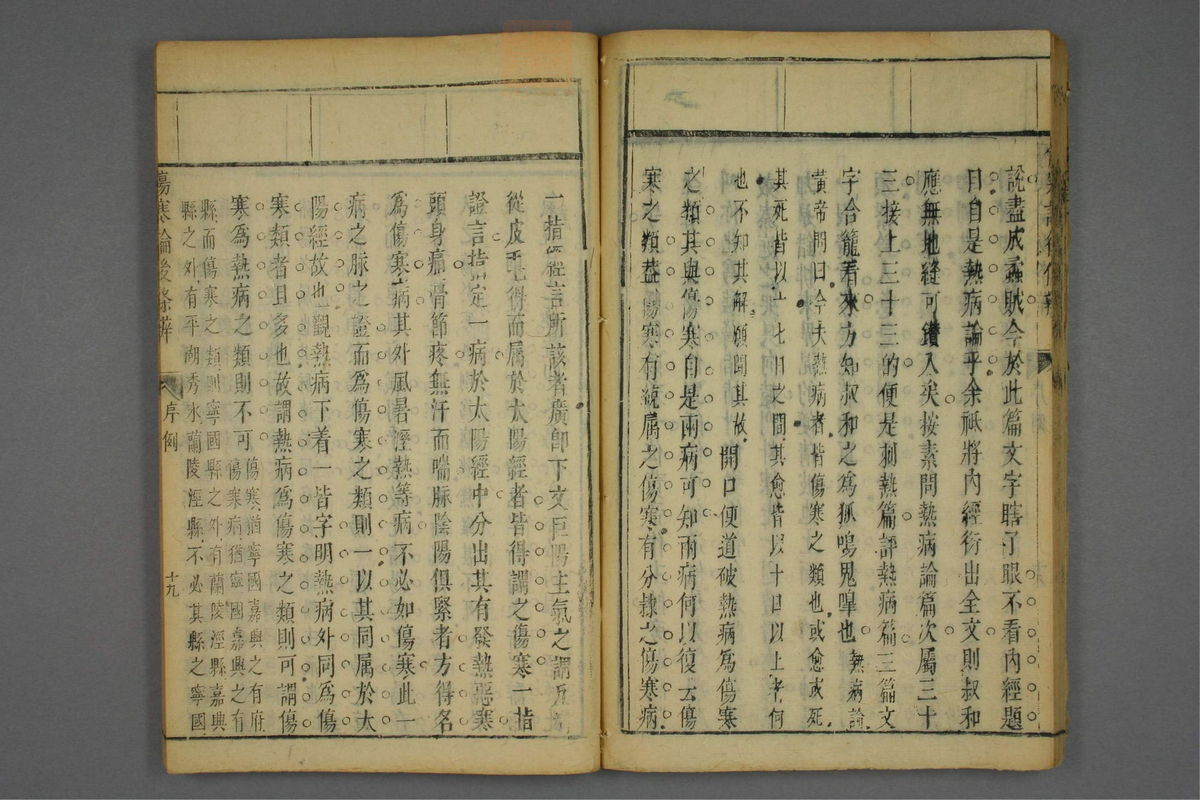 說盡成蟊賊今於此篇文字瞎了眼不看內經題
目自是熱病論乎余祗將內經衍出全文則叔和
應無地縫可鑽入矣按素問熱病論篇次屬三十
三接上三十三的便是刺熱篇評熱病篇三篇文
字合籠看來方知叔和之為狐鳴鬼嘷也熱病論
黃帝問曰今夫熱病者皆傷寒之類也或愈或死
其死皆以六七日之間其愈皆以十日以上者何
也不知其解願聞其故開口便道破熱病為傷寒
之類其與傷寒自是兩病可知兩病何以復云傷
寒之類葢傷寒有統屬之傷寒有分隷之傷寒病
一指經言所該者廣即下文巨陽主氣之謂
從皮毛得而屬於太陽經者皆得謂之傷寒一指
證言指定一病於太陽經中分出其有發熱惡寒
頭身痛骨節疼無汗而喘脉陰陽俱緊者方得名
為傷寒病其外風暑溼熱等病不必如傷寒此一
病之脉之證而為傷寒之類則一以其同屬於太
陽經故也觀熱病下着一皆字明熱病外同為傷
寒類者且多也故謂熱病為傷寒之類則可謂傷
寒為熱病之類則不可傷寒猶寧國嘉興之有府
傷寒病猶寧國嘉興之有
縣而傷寒之類則寧國縣之外有蘭陵涇縣嘉興
縣之外有平湖秀水蘭陵涇縣不必其縣之寧國
傷寒論後條辨
序例
十九